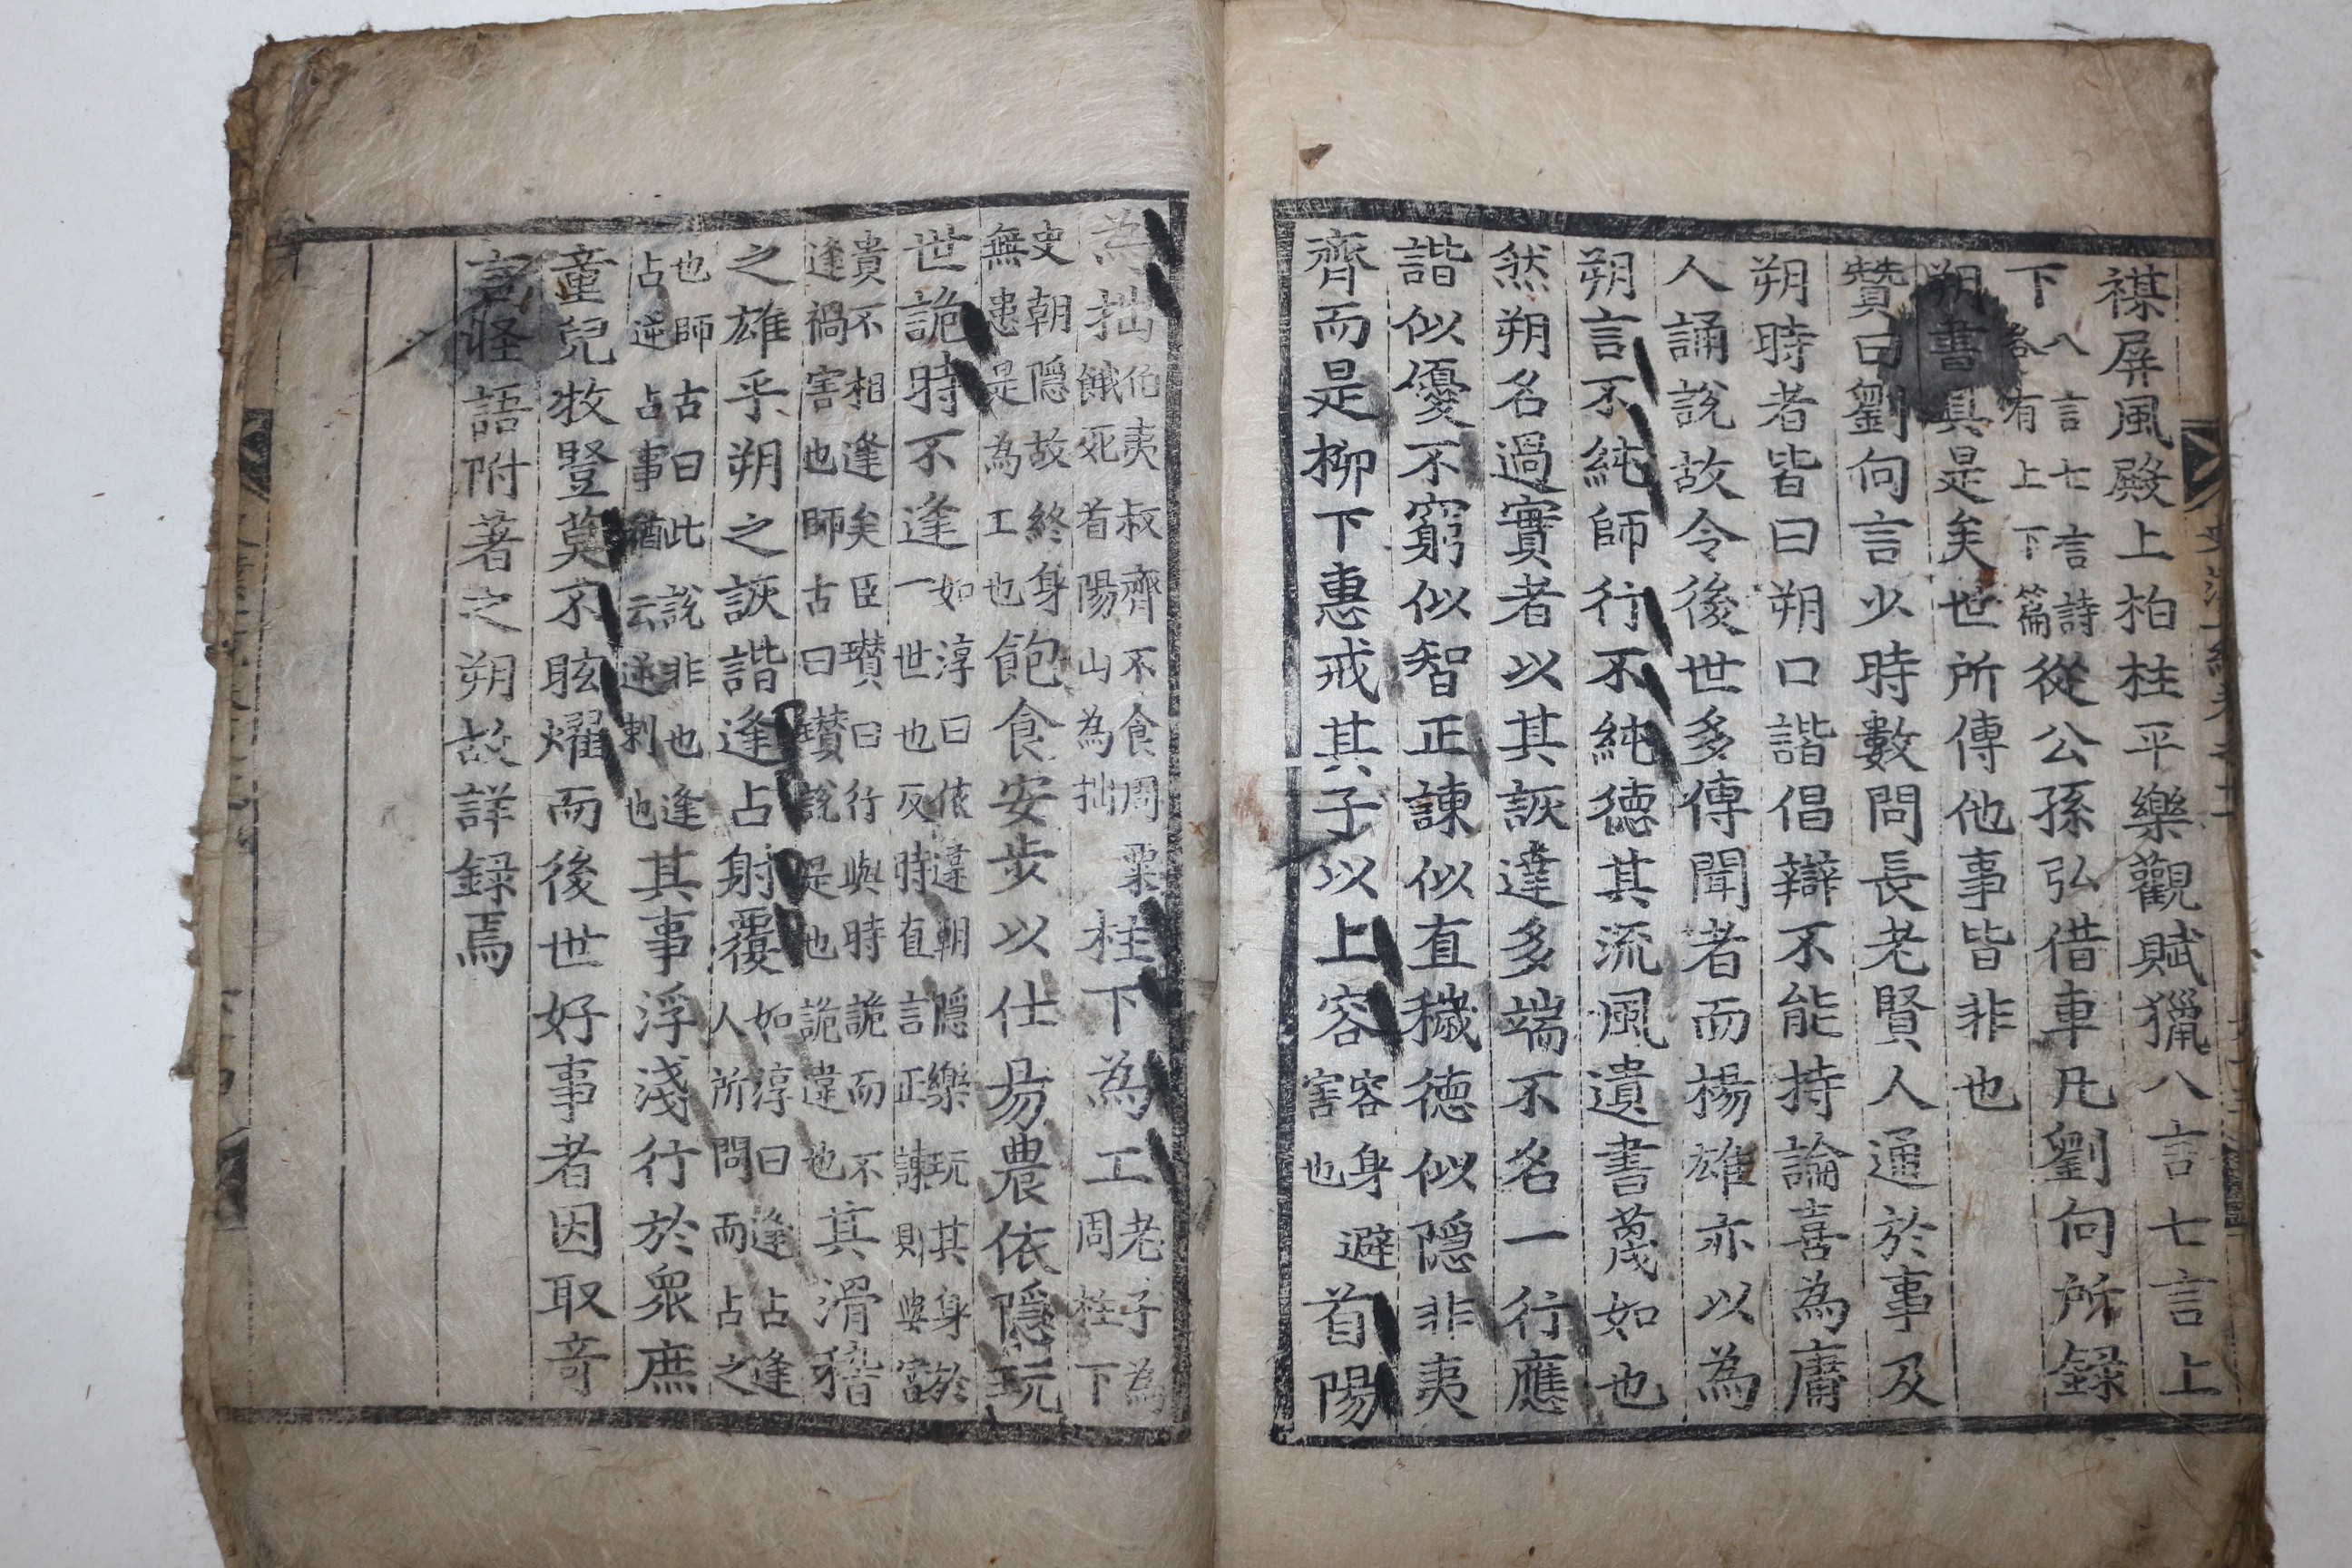 禖屏風殿上柏柱平樂觀賦獵八言七言上
下八言七言詩各有上下篇從公孫弘借車凡劉向所録
朔書具是矣世所傳他事皆非也
贊曰劉向言少時數問長老賢人通於事及
朔時者皆曰朔口諧倡辯不能持論喜為庸
人誦說故令後世多傳聞者而揚雄亦以為
朔言不純師行不純德其流風遺書蔑如也
然朔名過實者以其詼達多端不名一行應
諧似優不窮似智正諫似直穢德似隱非夷
齊而是柳下惠戒其子以上容容身避害也首陽
為拙伯夷叔齊不食周粟餓死首陽山為拙柱下為工老子為周柱下
史朝隱故終身無患是為工也飽食安步以仕易農依隱玩
世詭時不逢如淳曰依違朝隱樂玩其身於一世也反時直言正諫則與富
貴不相逢矣臣瓚曰行與時詭而不逢禍害也師古曰瓚說是也詭違也其滑稽
之雄乎朔之詼諧逢占射覆如淳曰逢占逢人所問而占之
也師古曰此說非也逢占逆占事猶云逆刺也其事浮淺行於衆庶
童兒牧豎莫不眩燿而後世好事者因取奇
言怪語附著之朔故詳録焉